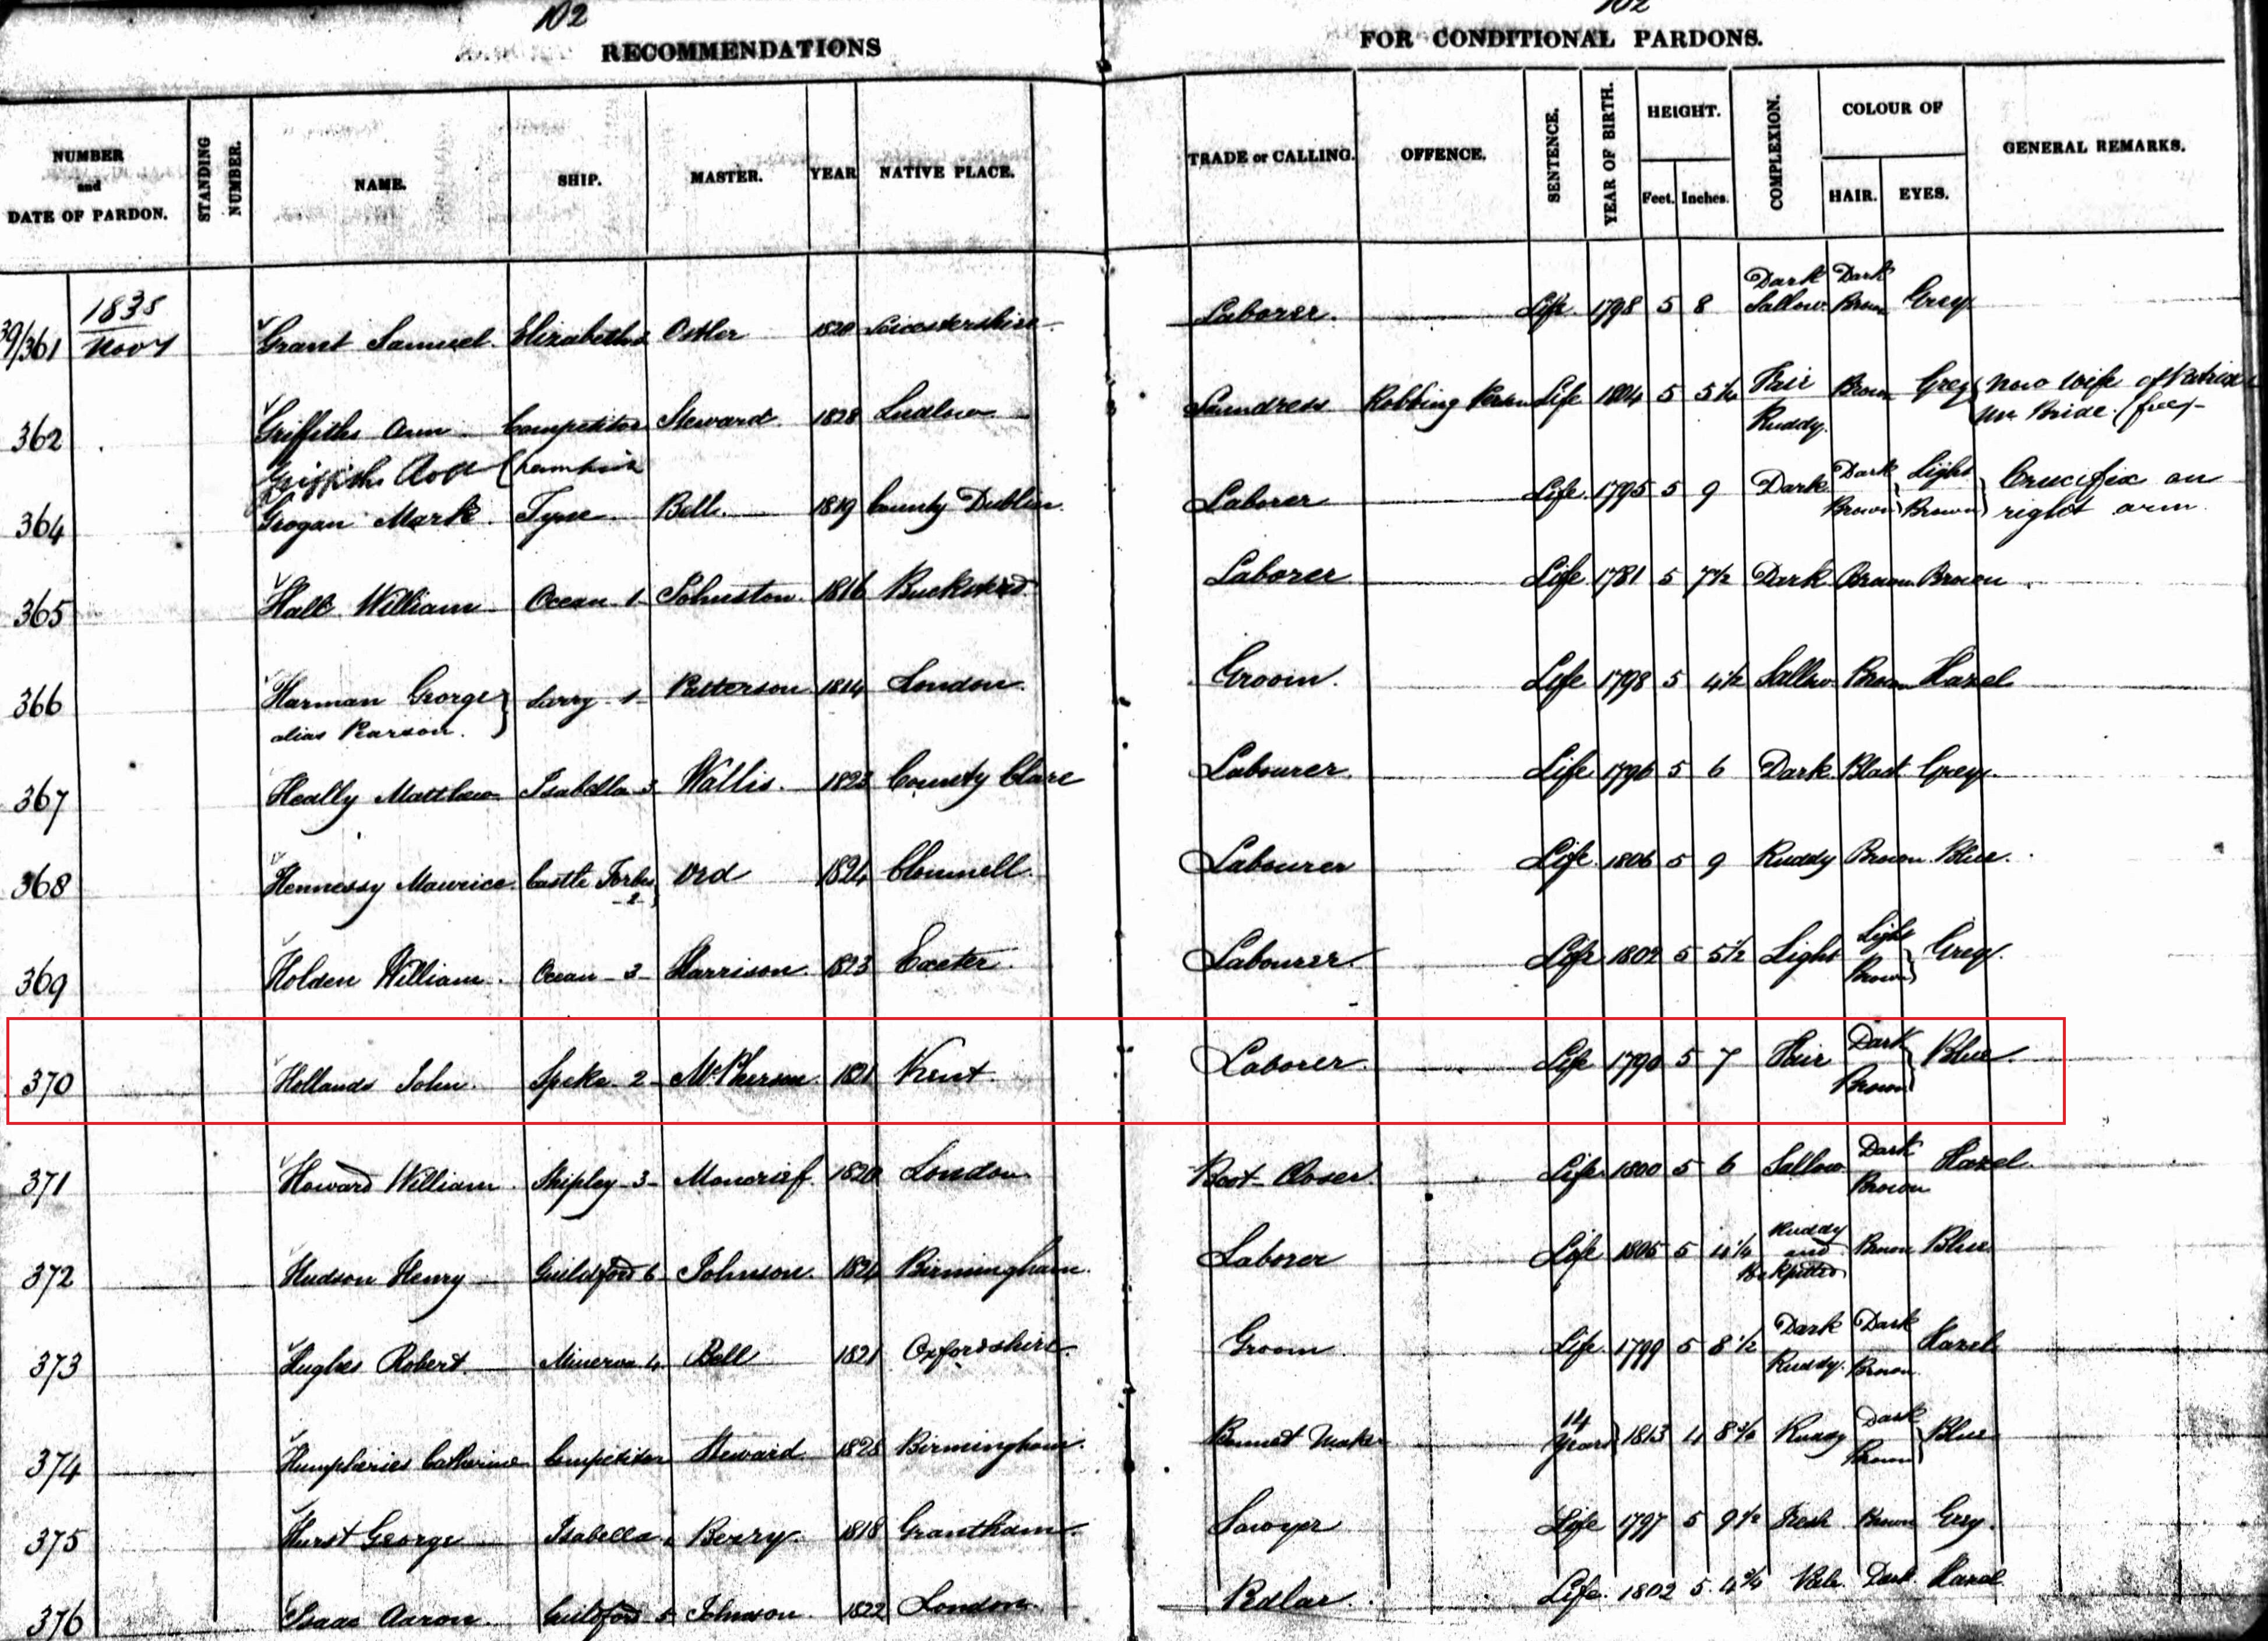 102 102
RECOMMENDATIONS FOR CONDITIONAL PARDONS.
NUMBER and DATE OF PARDON. STANDING NUMBER. NAME. SHIP. MASTER. YEAR NATIVE PLACE. TRADE or CALLING. OFFENCE. SENTENCE. YEAR OF BIRTH. HEIGHT. Feet. Inches. COMPLEXION. COLOUR OF HAIR. EYES. GENERAL REMARKS.
39/361 1835 Nov 1 Grant Samuel. Elizabeth Ostler 1820 Leicestershire Laborer. Life. 1798 5 8 Dark Sallow Dark Brown Grey
362 Griffiths Ann Competitor Steward. 1828 Ludlow Laundress Robbing Person Life 1804 5 5 1/4 Fair Ruddy. Brown Grey Now wife of Patrick Mc Bride. (free)
Griffiths Robt
364 Grogan Mark. Tyne. Bell. 1819 County Dublin. Laborer Life. 1795 5 9 Dark Dark Brown Light Brown Crucifix on right arm.
365 Hall William Ocean 1 Johnston. 1816 Laborer Life 1781 5 7 1/2 Dark Brown Brown
366 Harman George alias Pearson. Larry 1 Patterson 1814 London. Groom. Life 1798 5 4 1/2 Sallow Brown Hazel
367 Heally Matthew Isabella 3 Wallis. 1823 County Clare Labourer. Life 1796 5 6 Dark Black Grey.
368 Hennessy Maurice. Castle Forbes 2 Ord 1824 Clonmell. Labourer Life. 1806 5 9 Ruddy Brown Blue.
369 Holden William. Ocean 3 Harrison. 1823 Exeter. Labourer. Life 1802 5 5 1/2 Light Light Brown Grey.
370 Hollands John. Speke 2 McPherson. 1821 Kent. Laborer. Life 1790 5 7 Fair Dark Brown Blue.
371 Howard William. Shipley 3 Moncrief. 1820 London. Boot Closer. Life. 1800 5 6 Sallow Dark Brown Hazel.
372 Hudson Henry Guildford 6 Johnson. 1824 Birmingham. Laborer Life 1805 5 Ruddy and Pockpitted Brown Blue
373 Hughes Robert. Minerva 4 Bell 1821 Oxfordshire. Groom Life. 1799 5 8 1/2 Dark Ruddy. Dark Brown Hazel
374 Humpheries Catherine Competitor Steward. 1828 Birmingham. Bonnet Maker 14 Years 1813 4 Ruddy Dark Brown Blue
375 Hurst George Isabella 1 Berry. 1818 Grantham. Sawyer Life 1797 5 9 1/2 Fresh Brown Grey.
376 Isaac Aaron. Guildford 5 Johnson. 1822 London. Pedlar. Life. 1802 5 4 3/4 Pale Dark Hazel